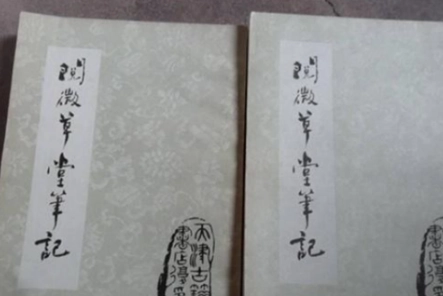 閱微草堂筆記
天津古籍
書店
閱微草堂筆記